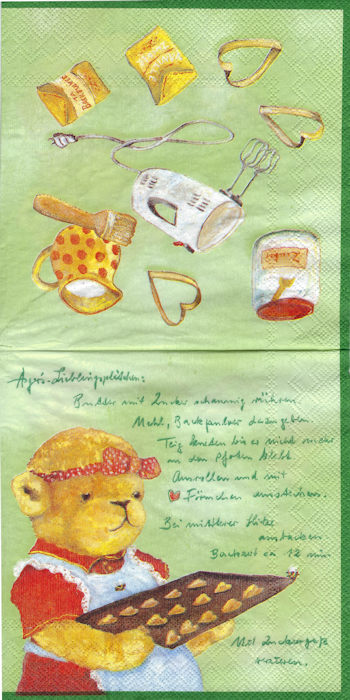 Backpulver
Lieblingsplätzchen:
Butter mit Zucker schaumig rühren.
Mehl, Backpulver dazugeben.
Teig kneten bis er nicht mehr
an den Pfoten klebt
Ausrollen und mit
Förmchen ausstechen.
Bei mittlerer Hitze
ausbacken
Backzeit ca 12 min
Mit Zuckerguß
verzieren.